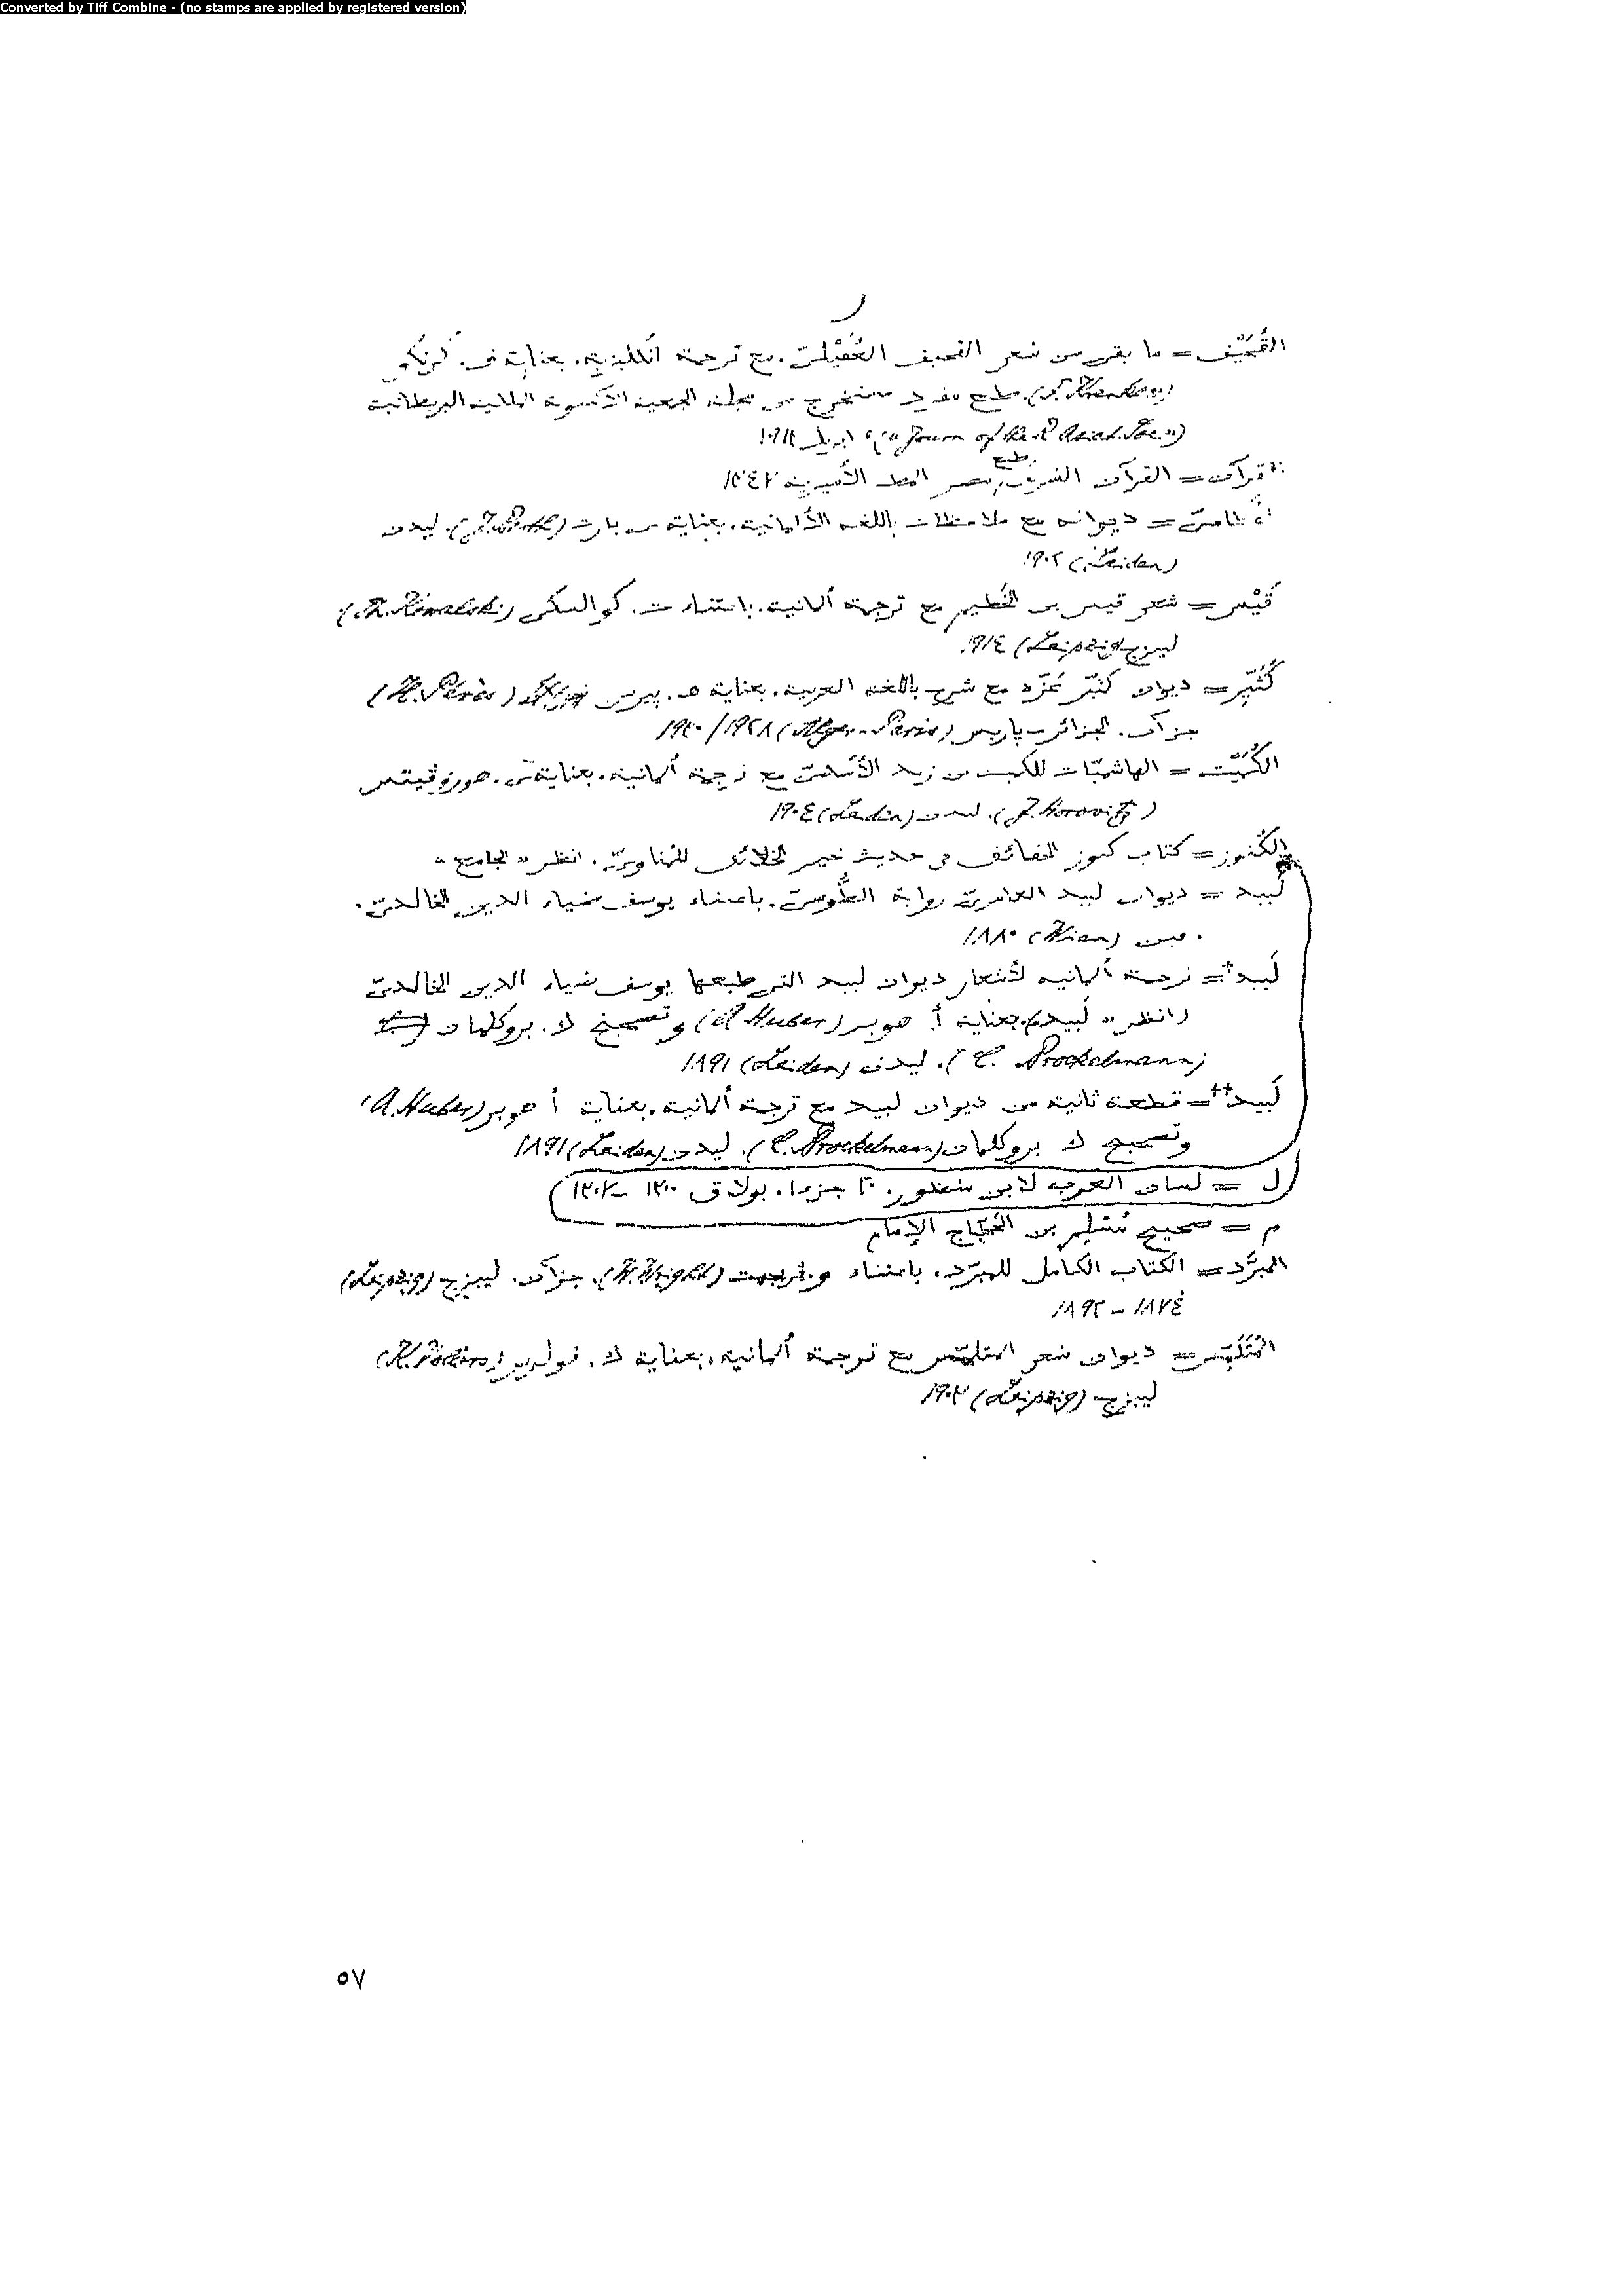 Converted by Tiff Combine - (no stamps are applied by registered version)
ر
القُحَيْف = ما بقى من شعر القحيف العُقَيْلىّ. مع ترجمة انكليزية. بعناية ف. كرنكو
(F. Krenkow). طبع مفرد مستخرج من مجلة الجمعية الآسيوية الملكية البريطانية
("Journ of the R. Asiat. Soc.") ابريل
قرآن = القرآن الشريف، طبع مصر المط. الأميرية ١٣٤٢
= ديوانه مع ملاحظات باللغة الألمانية. بعناية ى بارت (J. Barth). ليدن
(Leiden) ١٩٠٢
قَيْس = شعر قيس بن الخَطيم مع ترجمة ألمانية. باعتناء ت. كوالسكى (T. Kowalski).
ليبزج (Leipzig) ١٩١٤
كُثَيِّر = ديوان كثيّر عَزّة مع شرح باللغة العربية. بعناية هـ. پيرس (H. Pérès)
جزآن. الجزائر - پاريس (Alger - Paris) ١٩٢٨/١٩٣٠
الكُمَيْت = الهاشميّات للكميت بن زيد الأسدىّ مع ترجمة ألمانية. بعناية ى. هوروڤيتس
(J. Horovitz). ليدن (Leiden) ١٩٠٤
الكُنوز = كتاب كنوز الحقائق فى حديث خير الخلائق للمُناوىّ. انظر « الجامع »
لَبيد = ديوان لبيد العامرىّ رواية الطُّوسىّ. باعتناء يوسف ضياء الدين الخالدىّ.
. ڤين (Wien) ١٨٨٠
لَبيد+ = ترجمة ألمانية لأشعار ديوان لبيد التى طبعها يوسف ضياء الدين الخالدىّ
(انظر « لَبيد»). بعناية أ. هوبر (A. Huber) وتصحيح ك. بروكلمان
(C. Brockelmann). ليدن (Leiden) ١٨٩١
لَبيد++ = قطعة ثانية من ديوان لبيد مع ترجمة ألمانية. بعناية أ هوبر (A. Huber)
وتصحيح ك بروكلمان (C. Brockelmann). ليدن (Leiden) ١٨٩١
ل = لسان العرب لابن منظور. ٢٠ جزءا. بولاق ١٣٠٠ - ١٣٠٧
م = صحيح مُسْلِم بن الحَجّاج الإمام
المبرَّد = الكتاب الكامل للمبرّد. باعتناء و. ڤريجت (W. Wright). جزآن. ليبزج (Leipzig)
١٨٧٤ - ١٨٩٢
المُتَلَمِّس = ديوان شعر المتلمّس مع ترجمة ألمانية. بعناية ك. فولرس (K. Vollers)
ليبزج (Leipzig) ١٩٠٣
٥٧